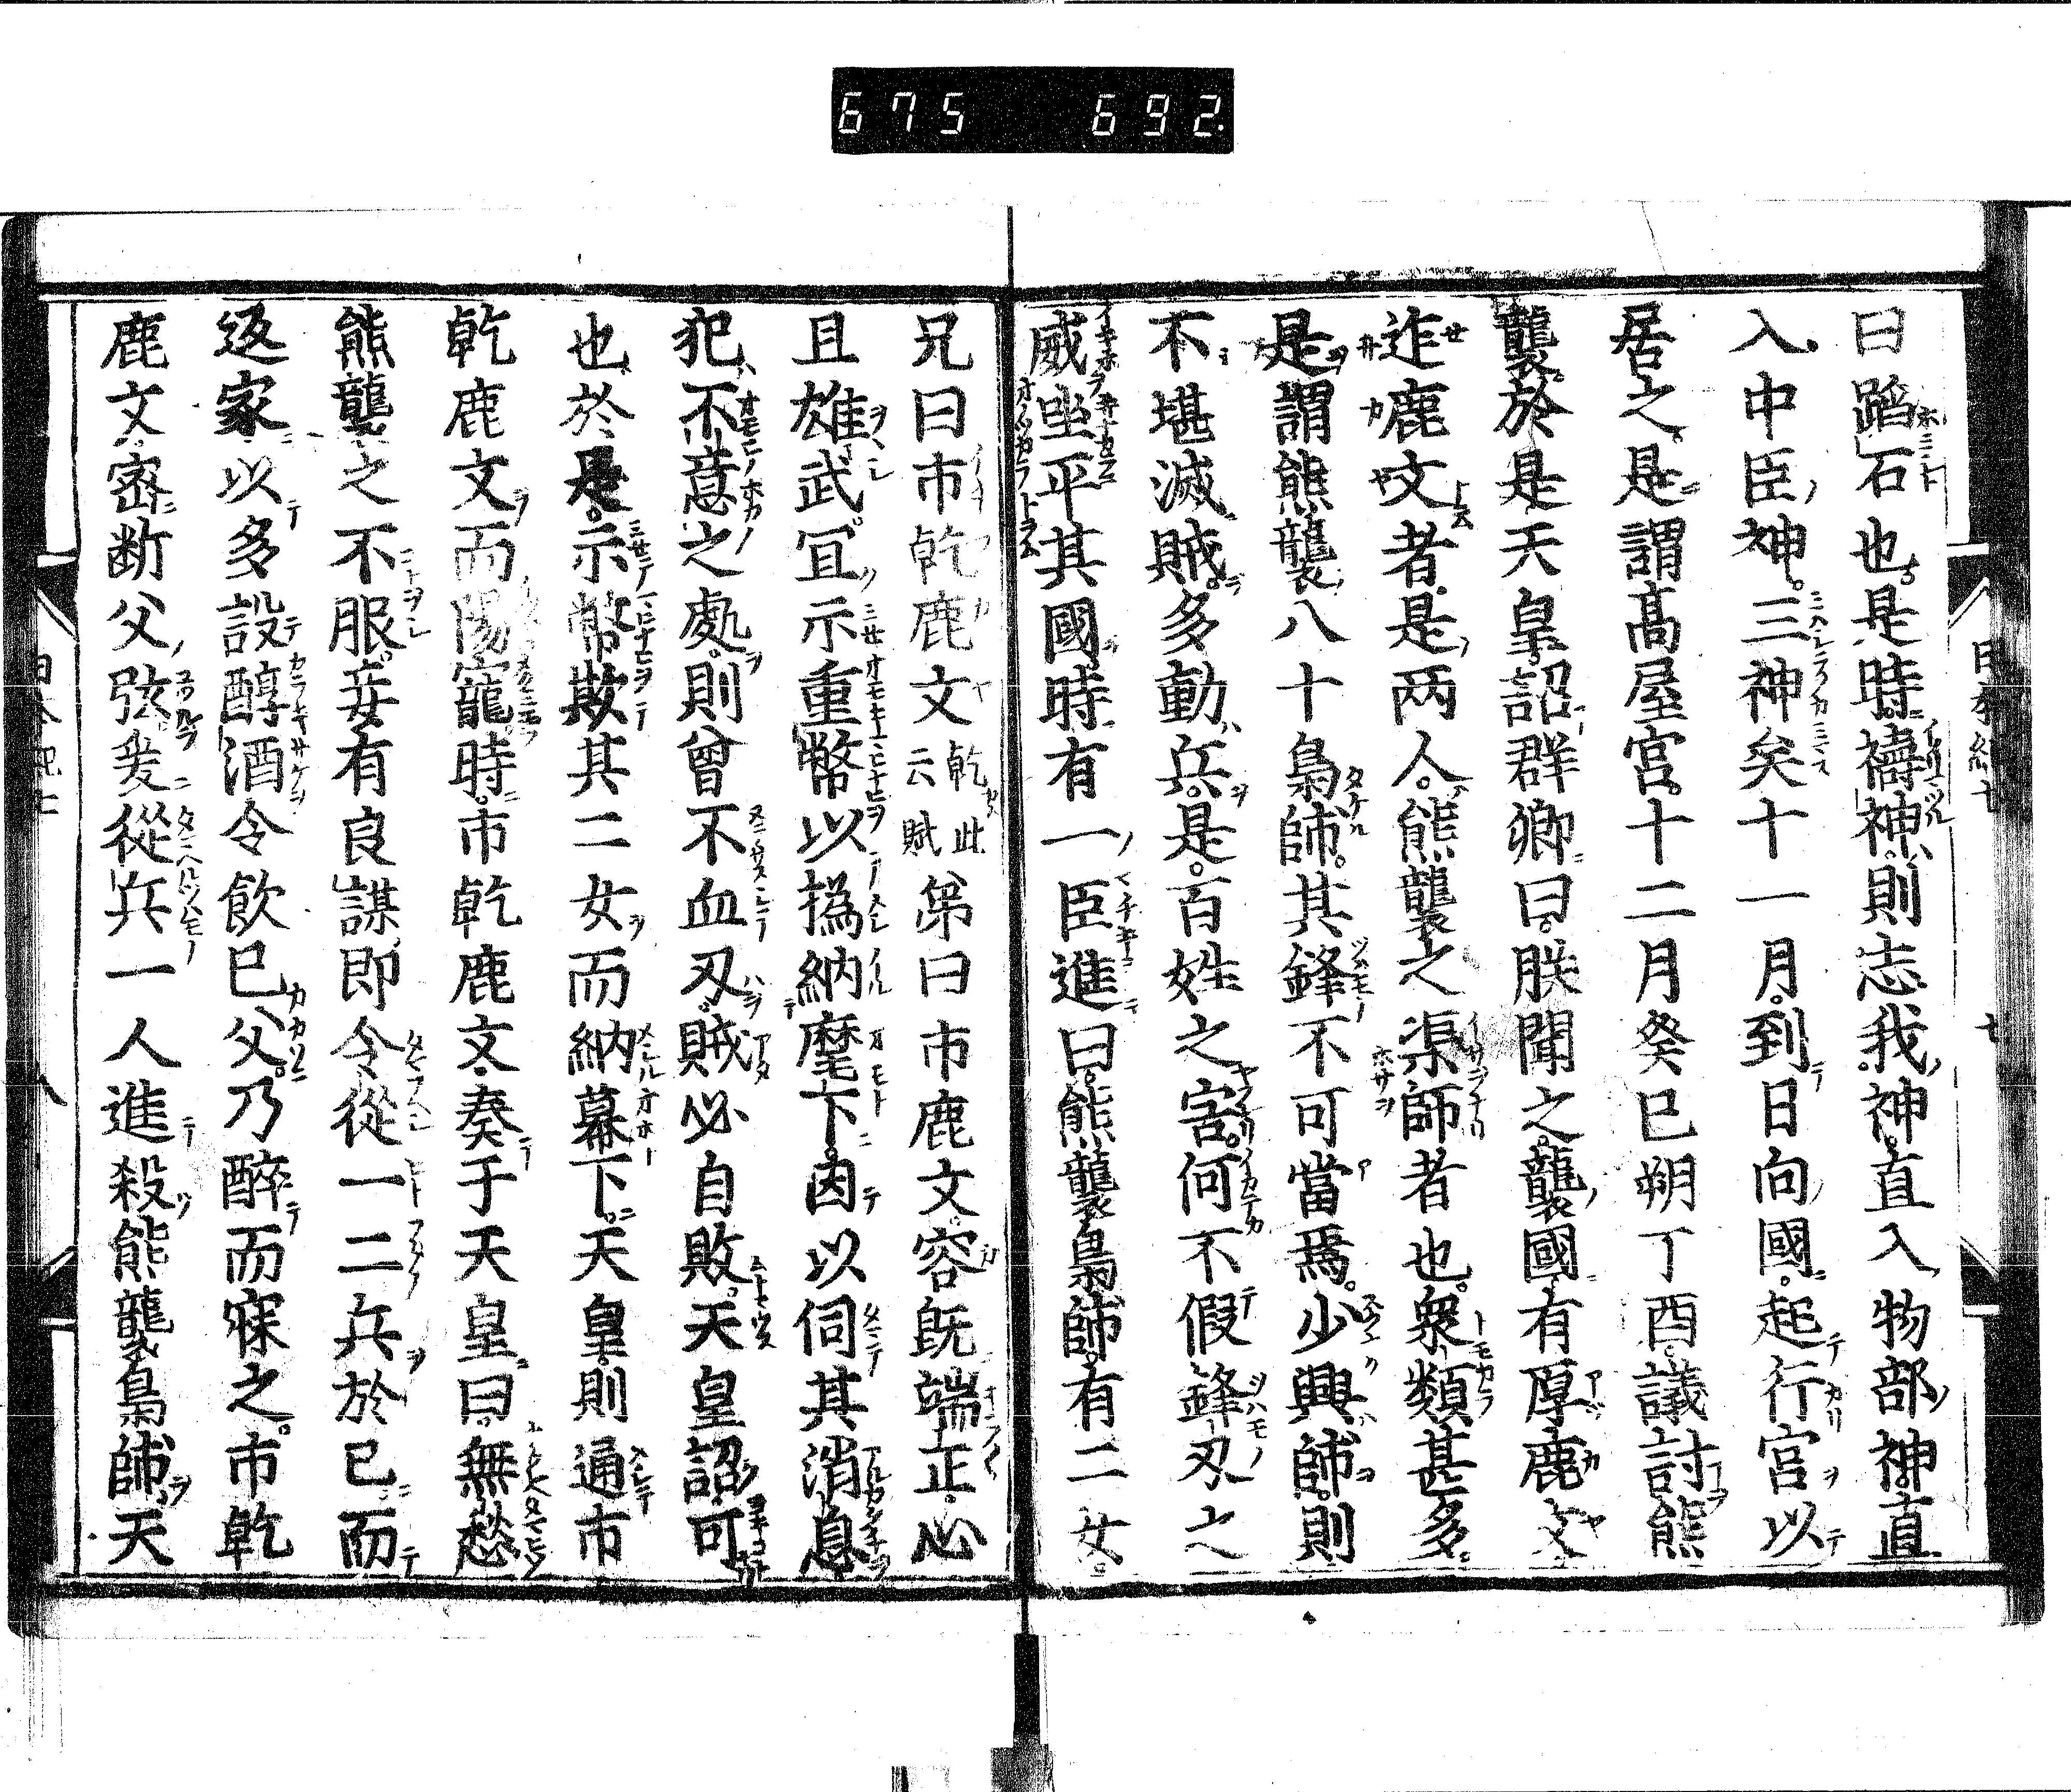 675 692
曰蹈石也是時禱神則志我神直入物部神直
入中臣神三神矣十一月到日向國起行宮以
居之是謂髙屋宮十二月癸巳朔丁酉議討熊
襲於是天皇詔群卿曰朕聞之襲國有厚鹿文
迮鹿文者是两人熊襲之渠師者也衆類甚多
是謂熊襲八十梟師其鋒不可當焉少興師則
不堪滅賊多動兵是百姓之害何不假鋒刃之
威坐平其國時有一臣進曰熊襲梟師有二女
兄曰市乾鹿文乾此云賦弟曰市鹿文容既端正心
且雄武冝示重幣以撝納麾下因以伺其消息
犯不意之處則曾不血刃賊必自敗天皇詔可
也於是示幣欺其二女而納幕下天皇則通市
乾鹿文而陽寵時市乾鹿文奏于天皇曰無愁
熊襲之不服妾有良謀即令從一二兵於己而
返家以多設醇酒令飲已父乃醉而寐之市乾
鹿文宻断父弦爰從兵一人進殺熊襲梟師天
日本紀七
七
八